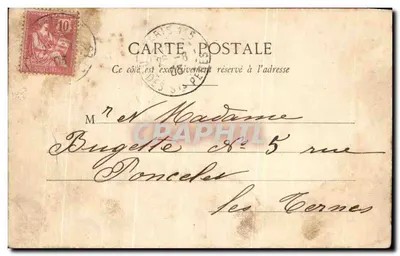 10
CARTE POSTALE
Ce côté est exclusivement réservé à l'adresse
Mr N Madame
Bugette No 5 rue
Poncelet
les Ternes